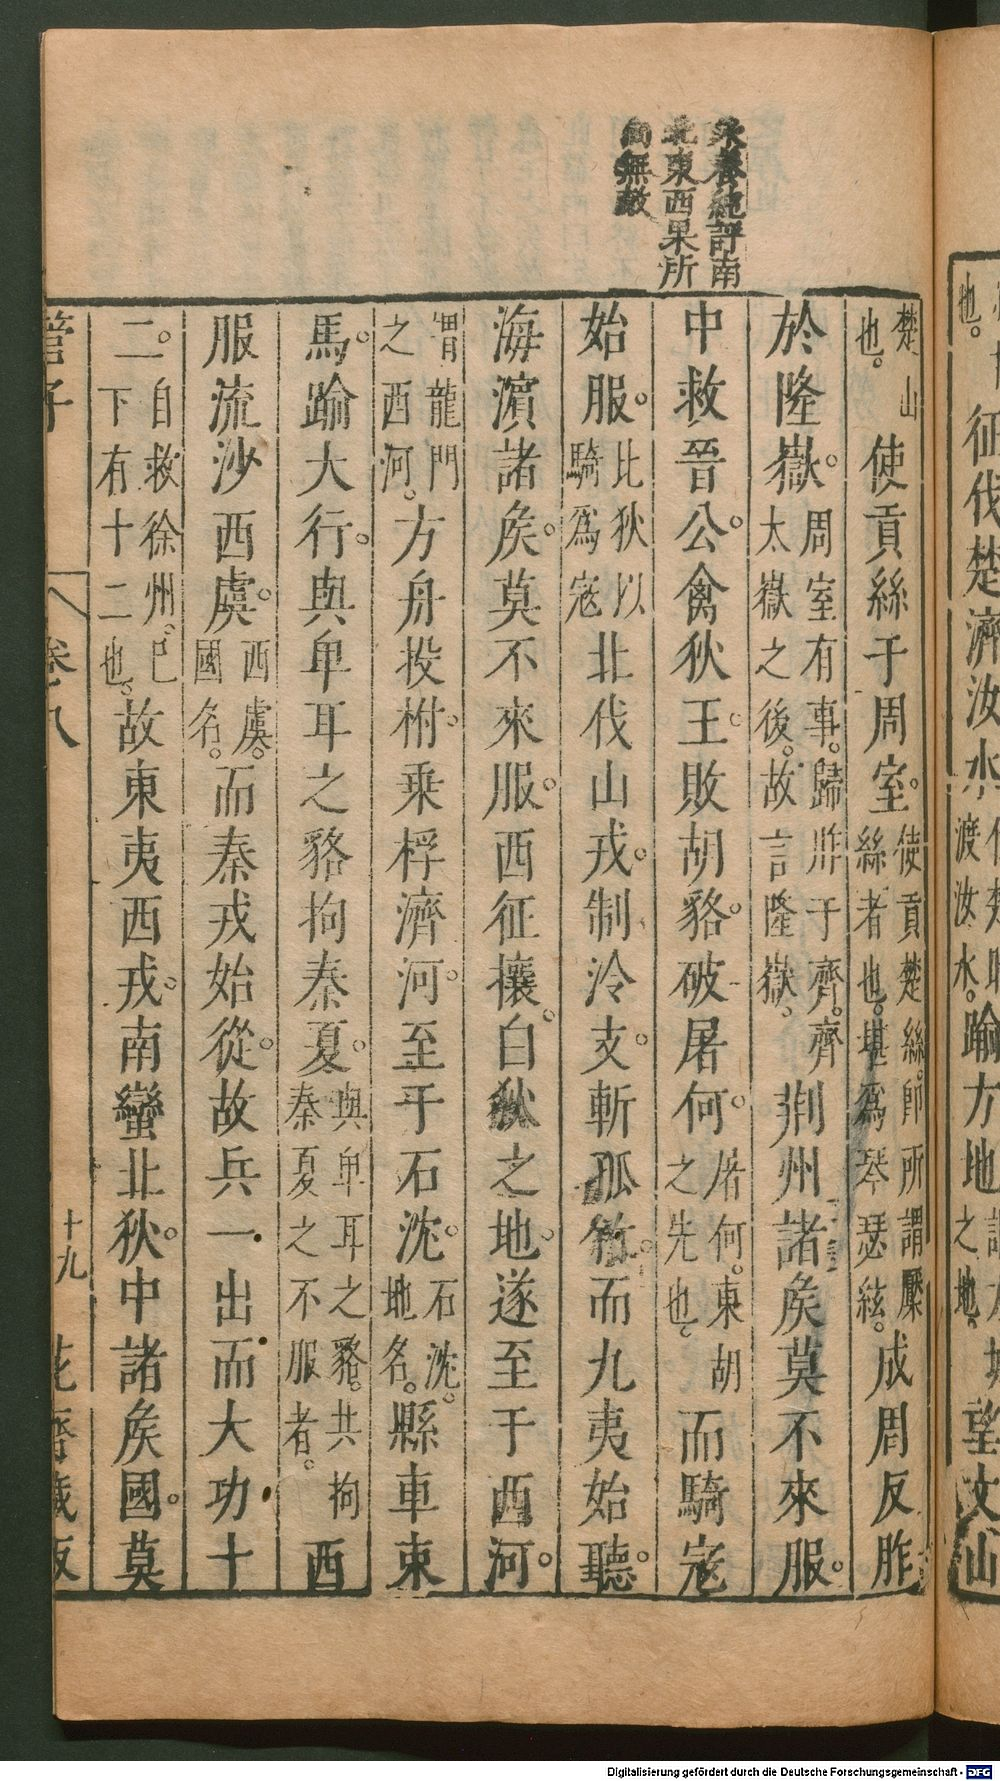 朱養純評南
北東西果所
向無敵
楚山也。使貢絲于周室。使貢楚絲。師所謂檿絲者也。堪爲琴瑟絃。成周反胙
於隆嶽。周室有事。歸胙于齊。齊太嶽之後。故言隆嶽。荆州諸矦莫不來服。
中救晉公。禽狄王。敗胡貉。破屠何。屠何。東胡之先也。而騎寇
始服。比狄以騎爲寇北伐山戎。制泠支。斬孤竹。而九夷始聽。
海濱諸矦。莫不來服。西征攘。白狄之地。遂至于西河。
謂龍門之西河。方舟投柎。乗桴濟河。至于石沈。石沈。地名。縣車束
馬。踰大行。與卑耳之貉拘秦夏。與卑耳之貉。共拘秦夏之不服者。西
服流沙西虞。西虞。國名。而秦戎始從。故兵一出而大功十
二。自救徐州。巳下有十二也。故東夷西戎。南蠻北狄。中諸矦國。莫
管子
卷八
十九
花齋藏版
征伐楚濟汝水
渡汝水。踰方地
之地。
望文山
也。
Digitalisierung gefördert durch die Deutsche Forschungsgemeinschaft - DFG